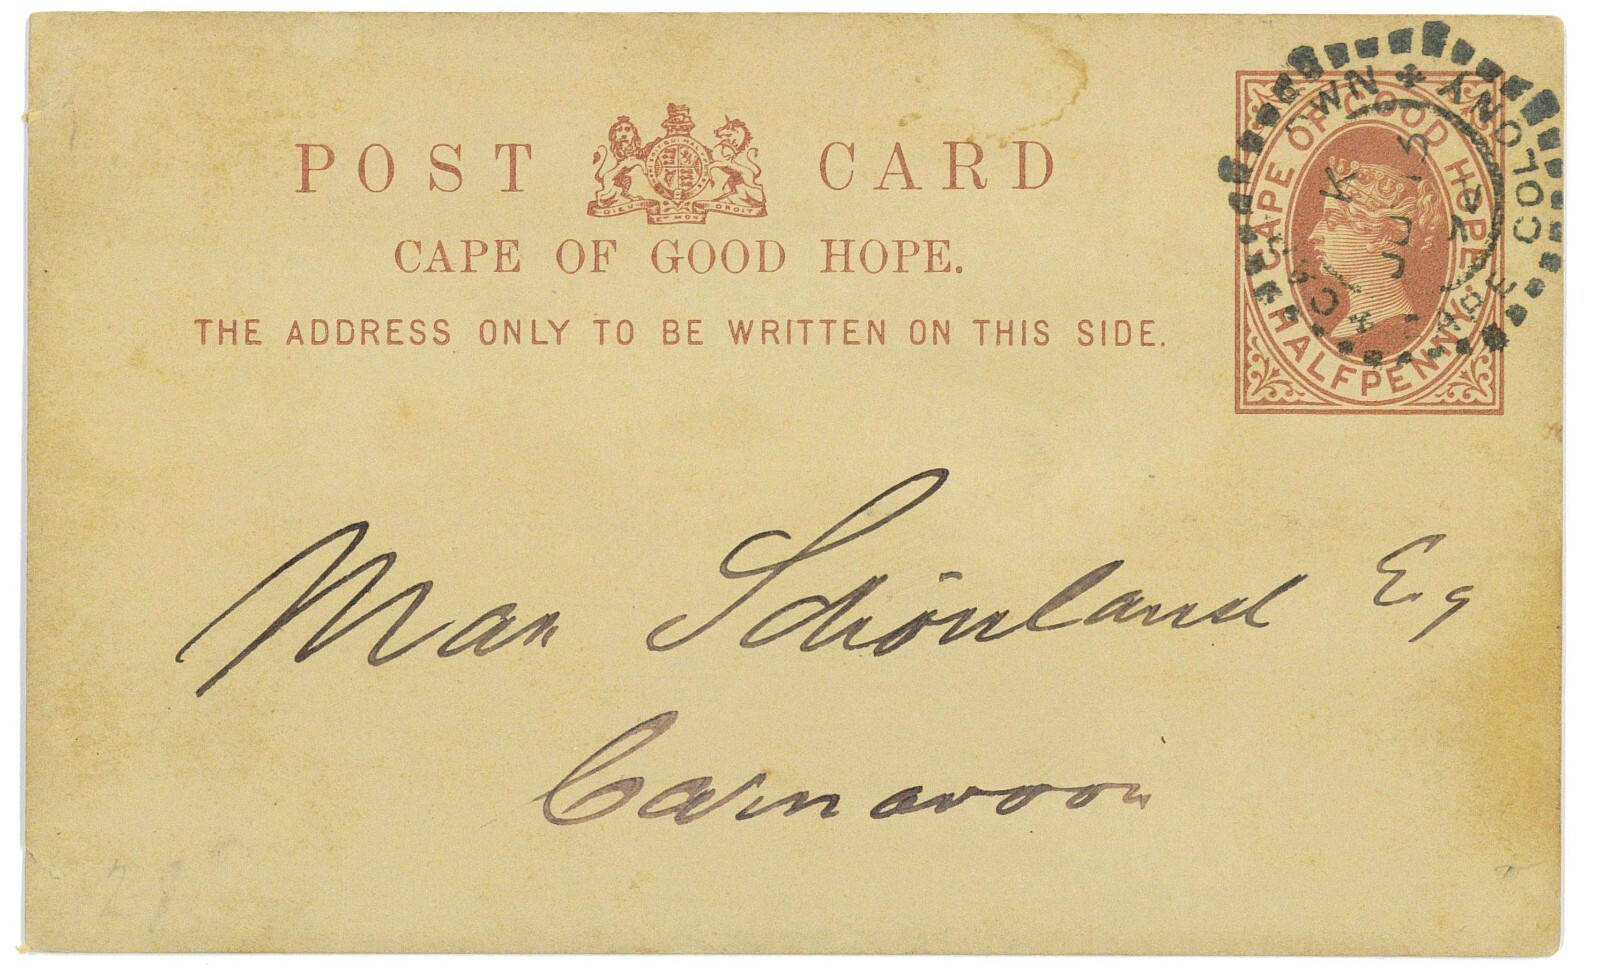 POST CARD
DIEU ET MON DROIT
CAPE OF GOOD HOPE.
THE ADDRESS ONLY TO BE WRITTEN ON THIS SIDE.
CAPE OF GOOD HOPE
HALFPENNY
COLONY
K
Max Schönland Esq
Carnarvon